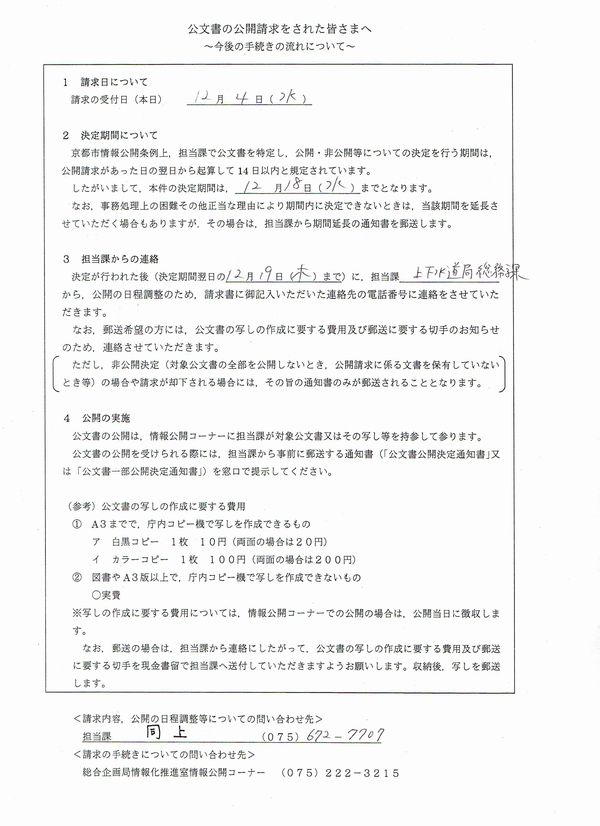 公文書の公開請求をされた皆さまへ
～今後の手続きの流れについて～
１ 請求日について
請求の受付日（本日） 12月 4日（水）
２ 決定期間について
京都市情報公開条例上，担当課で公文書を特定し，公開・非公開等についての決定を行う期間は，
公開請求があった日の翌日から起算して 14 日以内と規定されています。
したがいまして，本件の決定期間は， 12月 18日（水）までとなります。
なお，事務処理上の困難その他正当な理由により期間内に決定できないときは，当該期間を延長さ
せていただく場合もありますが，その場合は，担当課から期間延長の通知書を郵送します。
３ 担当課からの連絡
決定が行われた後（決定期間翌日の12月 19日（木）まで）に，担当課 上下水道局総務課
から，公開の日程調整のため，請求書に御記入いただいた連絡先の電話番号に連絡をさせていただ
きます。
なお，郵送希望の方には，公文書の写しの作成に要する費用及び郵送に要する切手のお知らせ
のため，連絡させていただきます。
ただし，非公開決定（対象公文書の全部を公開しないとき，公開請求に係る文書を保有していない
とき等）の場合や請求が却下される場合には，その旨の通知書のみが郵送されることとなります。
４ 公開の実施
公文書の公開は，情報公開コーナーに担当課が対象公文書又はその写し等を持参して参ります。
公文書の公開を受けられる際には，担当課から事前に郵送する通知書（「公文書公開決定通知書」又
は「公文書一部公開決定通知書」）を窓口で提示してください。
（参考）公文書の写しの作成に要する費用
① Ａ３までで，庁内コピー機で写しを作成できるもの
ア 白黒コピー １枚 １０円（両面の場合は２０円）
イ カラーコピー １枚 １００円（両面の場合は２００円）
② 図書やＡ３版以上で，庁内コピー機で写しを作成できないもの
○実費
※写しの作成に要する費用については，情報公開コーナーでの公開の場合は，公開当日に徴収しま
す。
なお，郵送の場合は，担当課から連絡にしたがって，公文書の写しの作成に要する費用及び郵送
に要する切手を現金書留で担当課へ送付していただきますようお願いします。収納後，写しを郵送
します。
＜請求内容，公開の日程調整等についての問い合わせ先＞
担当課 同上 （075）672－7707
＜請求の手続きについての問い合わせ先＞
総合企画局情報化推進室情報公開コーナー （０７５）２２２－３２１５